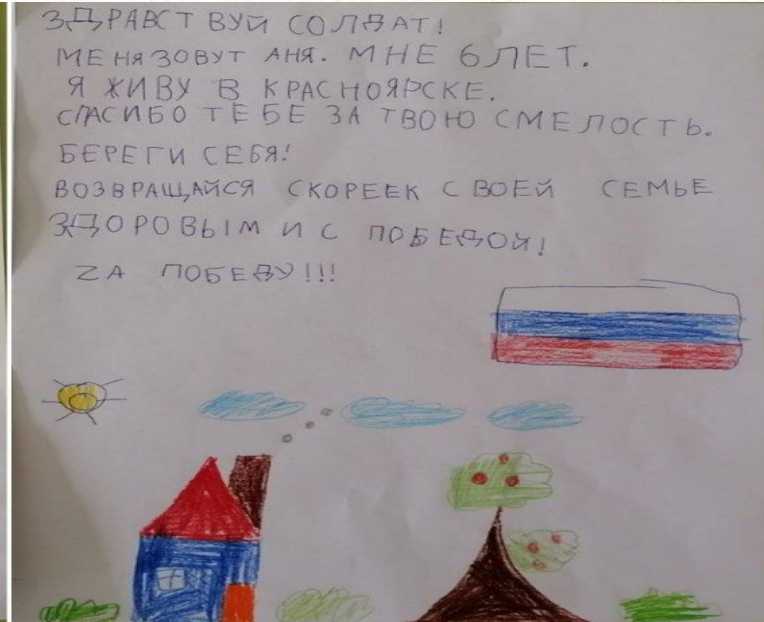 ЗДРАВСТВУЙ СОЛДАТ!
МЕНЯ ЗОВУТ АНЯ. МНЕ 6 ЛЕТ.
Я ЖИВУ В КРАСНОЯРСКЕ.
СПАСИБО ТЕБЕ ЗА ТВОЮ СМЕЛОСТЬ.
БЕРЕГИ СЕБЯ!
ВОЗВРАЩАЙСЯ СКОРЕЕ К СВОЕЙ СЕМЬЕ
ЗДОРОВЫМ И С ПОБЕДОЙ!
ZА ПОБЕДУ!!!